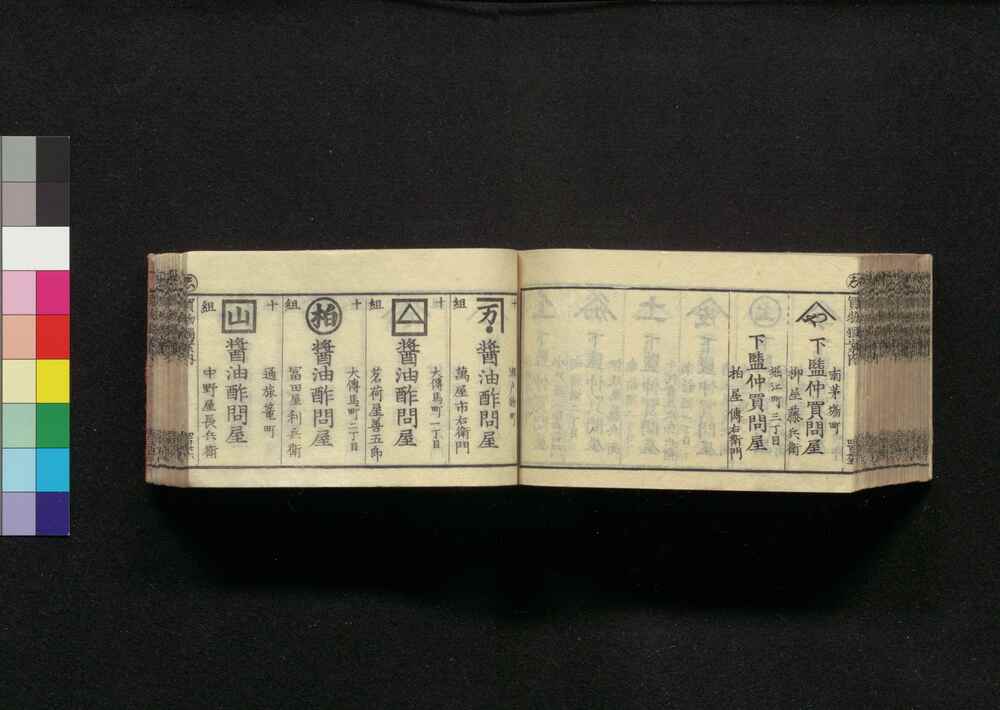 南茅場町
下塩仲買問屋
柳屋藤兵衛
堀江町三丁目
下塩仲買問屋
柏屋傳右衛門
十組
万
醬油酢問屋
萬屋市右衛門
十組
大傳馬町一丁目
醬油酢問屋
茗荷屋善五郎
十組
大傳馬町二丁目
柏
醬油酢問屋
冨田屋利兵衛
十組
通旅篭町
山
醬油酢問屋
中野屋長兵衛